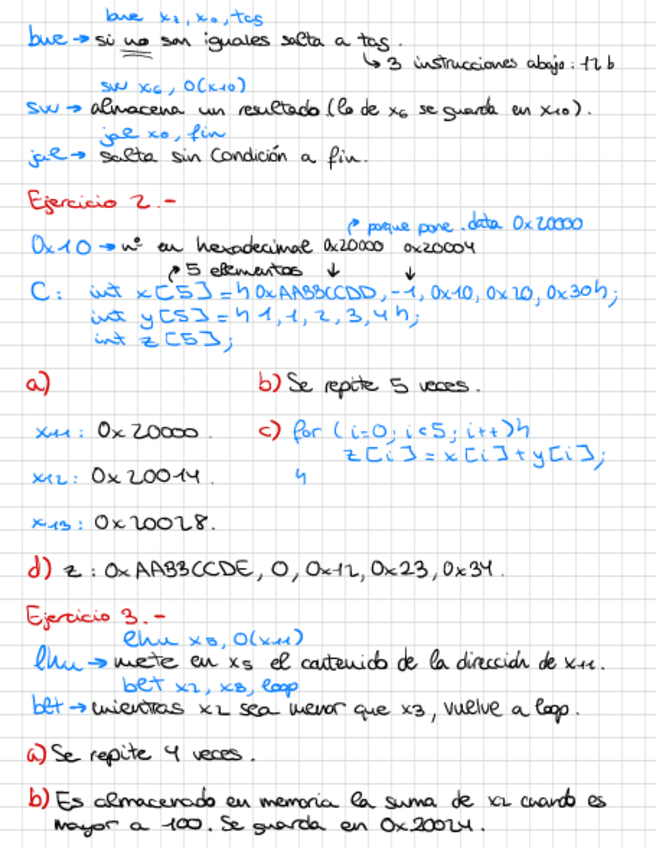 bne x7, x0, tas
bne → si no son iguales salta a tas.
↳ 3 instrucciones abajo: 12 b
sw x6, 0(x10)
sw → almacena un resultado (lo de x6 se guarda en x10).
jal x0, fin
jal → salta sin condición a fin.
Ejercicio 2.-
↱ porque pone .data 0x20000
0x10 → nº en hexadecimal 0x20000 0x20004
↱ 5 elementos ↓ ↓
C: int x[5] = {0xAABBCCDD, -1, 0x10, 0x20, 0x30};
int y[5] = {1, 1, 2, 3, 4};
int z[5];
a) b) Se repite 5 veces.
x11: 0x20000. c) for (i=0; i<5; i++){
z[i] = x[i] + y[i];
x12: 0x20014. }
x13: 0x20028.
d) z: 0xAABBCCDE, 0, 0x12, 0x23, 0x34.
Ejercicio 3.-
lhu x5, 0(x11)
lhu → mete en x5 el contenido de la dirección de x11.
blt x2, x3, loop
blt → mientras x2 sea menor que x3, vuelve a loop.
a) Se repite 4 veces.
b) Es almacenado en memoria la suma de x2 cuando es
mayor a 100. Se guarda en 0x20024.